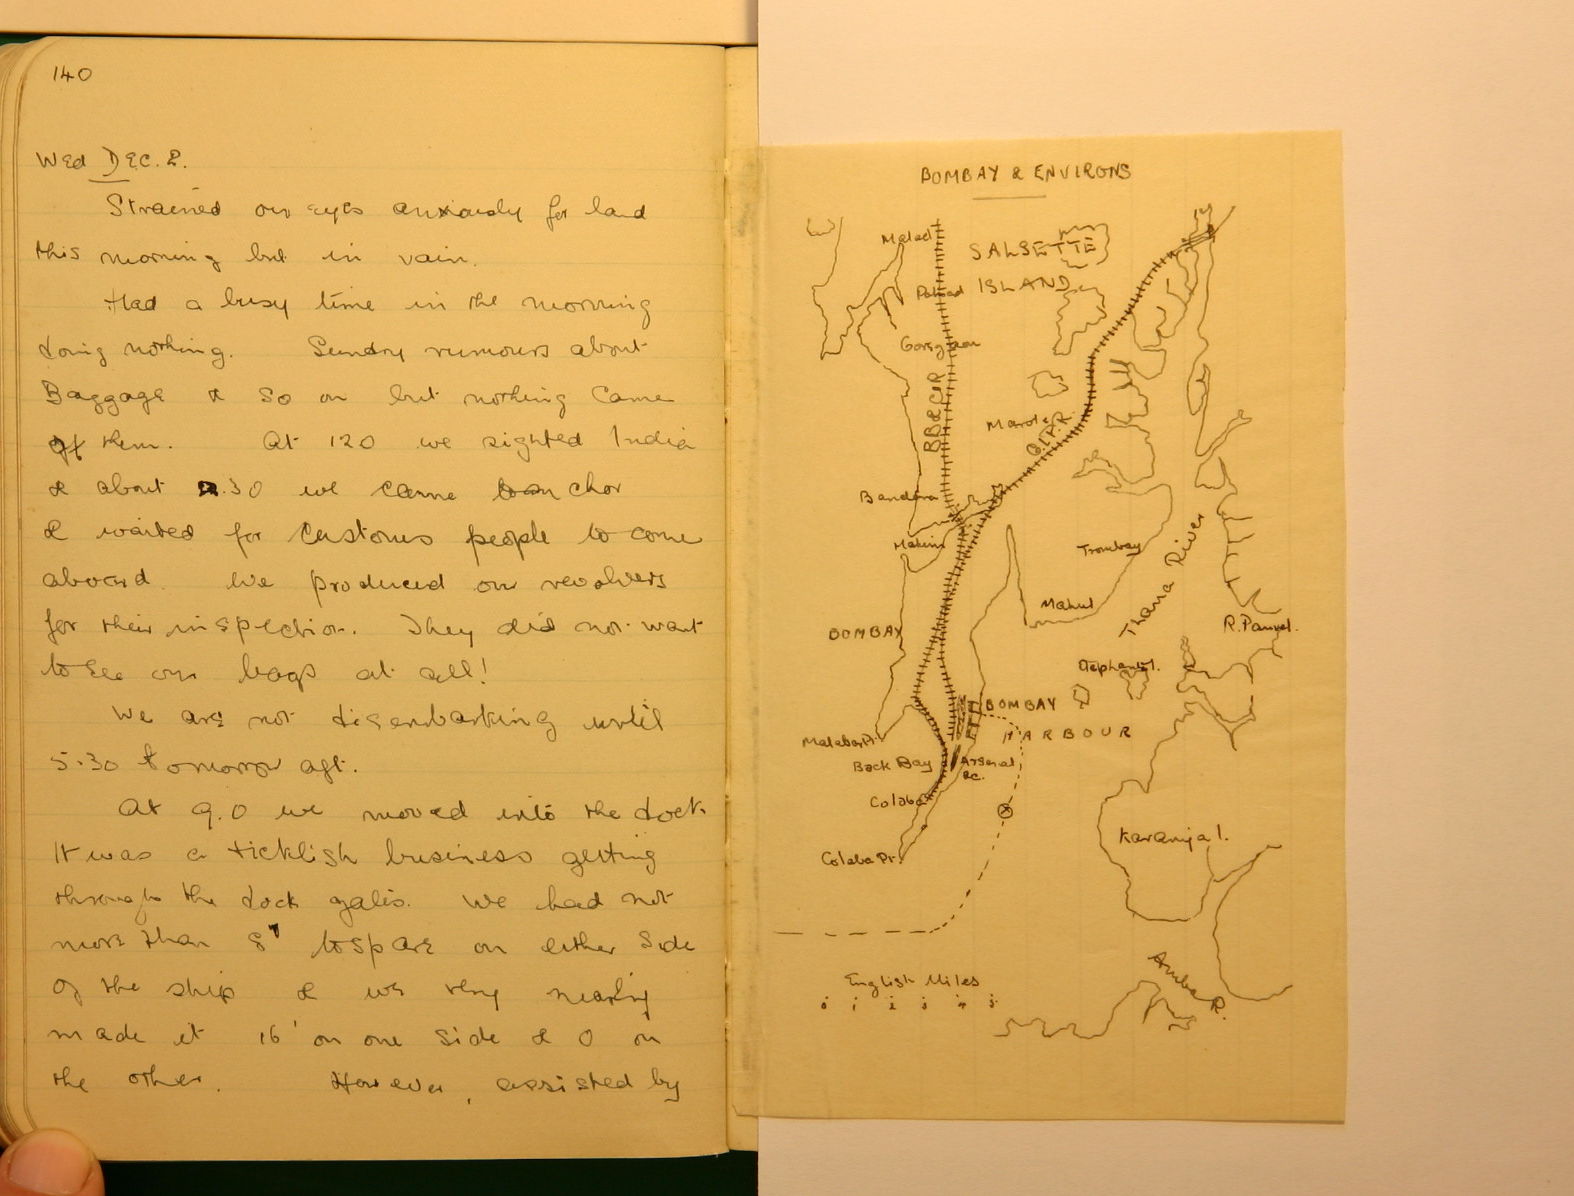 140
Wed Dec. 2.
Strained our eyes anxiously for land
this morning but in vain.
Had a busy time in the morning
doing nothing. Sundry rumours about
Baggage & so on but nothing came
of them. At 12.0 we sighted India
& about .30 we came to anchor
& waited for Customs people to come
aboard. We produced our revolvers
for their inspection. They did not want
to see our bags at all!
We are not disembarking until
5.30 tomorrow aft.
At 9.0 we moved into the dock.
It was a ticklish business getting
through the dock gates. We had not
more than 8' to spare on either side
of the ship & we very nearly
made it 16' on one side & 0 on
the other. However, assisted by
BOMBAY & ENVIRONS
Malad
SALSETTE
ISLAND
Pahadi
Goregaon
BB&CIR
Marole
G.I.P.R.
Bandora
Mahim
Trombay
Thana River
Mahul
BOMBAY
R. Panvel.
Elephant I.
BOMBAY
HARBOUR
Malabar Pt.
Back Bay
Arsenal
&c.
Colaba
Karanja I.
Colaba Pt.
Amba R.
English Miles
0 1 2 3 4 5